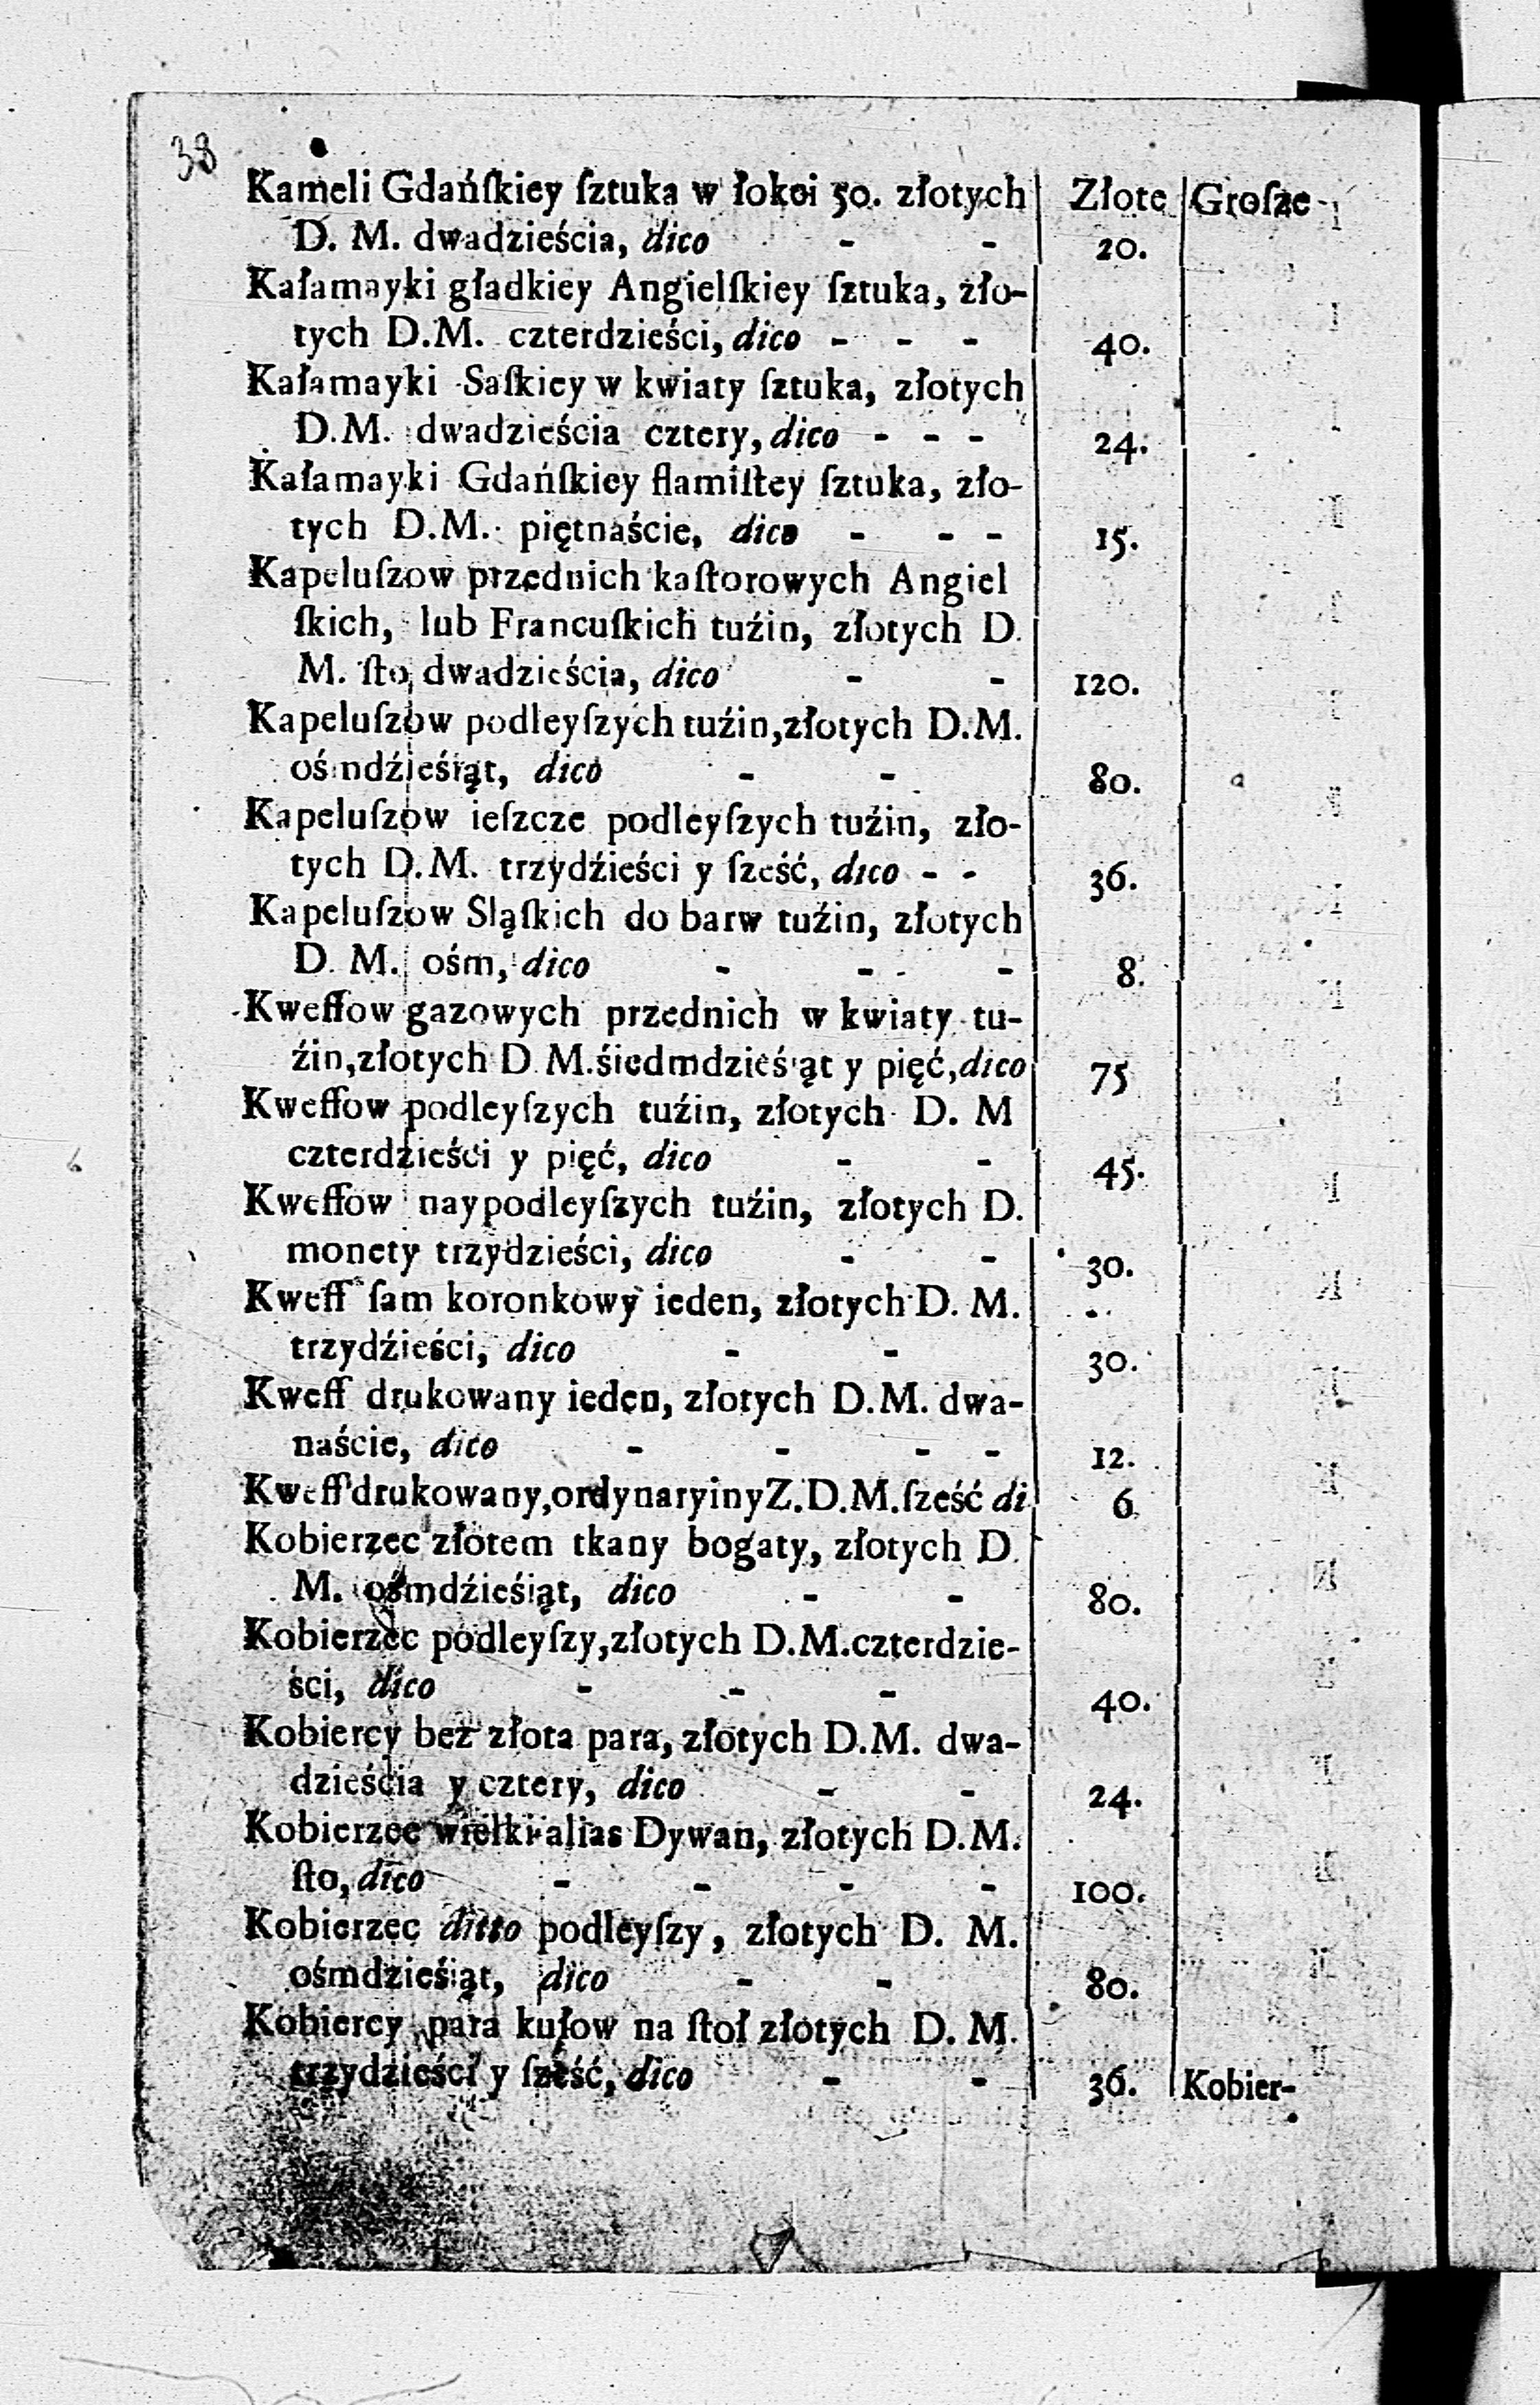 38
Kameli Gdańſkiey ſztuka w łokci 50. złotych | Złote | Groſze
D. M. dwadzieścia, dico - - 20.
Kałamayki gładkiey Angielſkiey ſztuka, zło-
tych D.M. czterdzieści, dico - - - 40.
Kałamayki Saſkiey w kwiaty ſztuka, złotych
D.M. dwadzieścia cztery, dico - - - 24.
Kałamayki Gdańſkiey flamiſtey ſztuka, zło-
tych D.M. piętnaście, dico - - - 15.
Kapeluſzow przednich kaſtorowych Angiel
ſkich, lub Francuſkich tuźin, złotych D.
M. ſto dwadzieścia, dico - - 120.
Kapeluſzow podleyſzych tuźin,złotych D.M.
ośmdźieśiąt, dico - - 80.
Kapeluſzow ieſzcze podleyſzych tuźin, zło-
tych D.M. trzydźieści y ſześć, dico - - 36.
Kapeluſzow Sląſkich do barw tuźin, złotych
D. M. ośm, dico - - - 8.
Kweffow gazowych przednich w kwiaty tu-
źin,złotych D M.śiedmdzieśiąt y pięć,dico 75
Kweffow podleyſzych tuźin, złotych D. M
czterdzieści y pięć, dico - - 45.
Kweffow naypodleyſzych tuźin, złotych D.
monety trzydzieści, dico - - 30.
Kweff ſam koronkowy ieden, złotych D. M.
trzydźieści, dico - - 30.
Kweff drukowany ieden, złotych D.M. dwa-
naście, dico - - - - 12.
Kweff drukowany,ordynaryiny Z.D.M.ſześć di 6.
Kobierzec złotem tkany bogaty, złotych D.
M. ośmdźieśiąt, dico - - 80.
Kobierzec podleyſzy,złotych D.M.czterdzie-
ści, dico - - - 40.
Kobiercy bez złota para, złotych D.M. dwa-
dzieścia y cztery, dico - - 24.
Kobierzec wielki alias Dywan, złotych D.M.
ſto, dico - - - - 100.
Kobierzec ditto podleyſzy, złotych D. M.
ośmdzieśiąt, dico - - 80.
Kobiercy para kuſow na ſtoł złotych D. M.
trzydźieści y ſześć, dico - - 36.
Kobier-